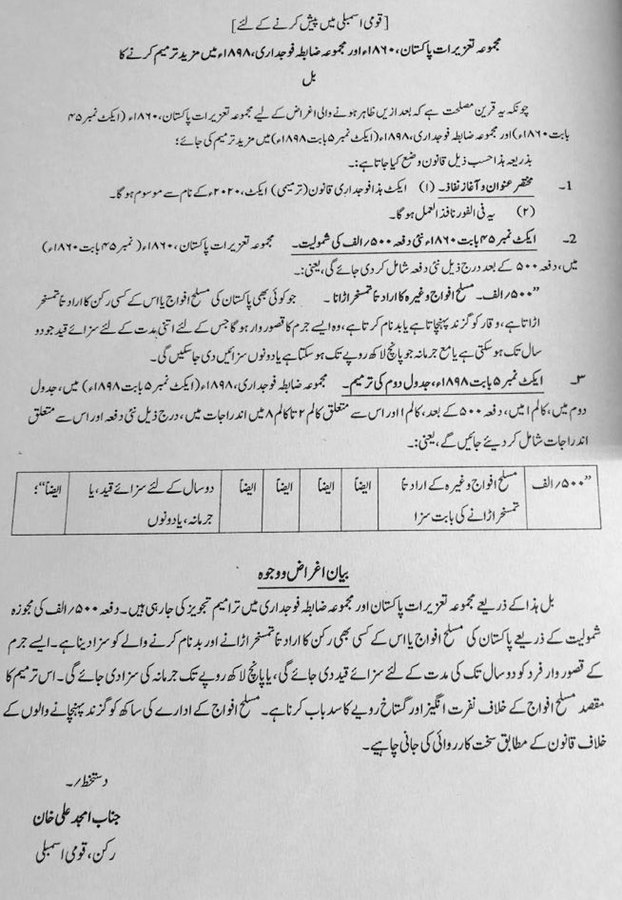 [قومی اسمبلی میں پیش کرنے کے لئے]
مجموعہ تعزیرات پاکستان، ۱۸۶۰ء اور مجموعہ ضابطہ فوجداری، ۱۸۹۸ء میں مزید ترمیم کرنے کا
بل
چونکہ یہ قرین مصلحت ہے کہ بعد ازیں ظاہر ہونے والی اغراض کے لیے مجموعہ تعزیرات پاکستان، ۱۸۶۰ء (ایکٹ نمبر ۴۵
بابت ۱۸۶۰ء) اور مجموعہ ضابطہ فوجداری، ۱۸۹۸ء (ایکٹ نمبر ۵ بابت ۱۸۹۸ء) میں مزید ترمیم کی جائے؛
بذریعہ ہذا حسب ذیل قانون وضع کیا جاتا ہے:۔
1۔ مختصر عنوان و آغاز نفاذ۔ (۱) ایکٹ ہذا فوجداری قانون (ترمیمی) ایکٹ، ۲۰۲۰ء کے نام سے موسوم ہوگا۔
(۲) یہ فی الفور نافذ العمل ہوگا۔
2۔ ایکٹ نمبر ۴۵ بابت ۱۸۶۰ء نئی دفعہ ۵۰۰/الف کی شمولیت۔ مجموعہ تعزیرات پاکستان، ۱۸۶۰ء (نمبر ۴۵ بابت ۱۸۶۰ء)
میں، دفعہ ۵۰۰ کے بعد درج ذیل نئی دفعہ شامل کر دی جائے گی، یعنی:۔
”۵۰۰/الف۔ مسلح افواج وغیرہ کا ارادتاً تمسخر اڑانا۔ جو کوئی بھی پاکستان کی مسلح افواج یا اس کے کسی رکن کا ارادتاً تمسخر
اڑاتا ہے، وقار کو گزند پہنچاتا ہے یا بدنام کرتا ہے، وہ ایسے جرم کا قصور وار ہوگا جس کے لئے اتنی مدت کے لئے سزائے قید جو دو
سال تک ہو سکتی ہے یا مع جرمانہ جو پانچ لاکھ روپے تک ہو سکتا ہے یا دونوں سزائیں دی جا سکیں گی۔
۳۔ ایکٹ نمبر ۵ بابت ۱۸۹۸ء، جدول دوم کی ترمیم۔ مجموعہ ضابطہ فوجداری، ۱۸۹۸ء (ایکٹ نمبر ۵ بابت ۱۸۹۸ء) میں، جدول
دوم میں، کالم ۱ میں، دفعہ ۵۰۰ کے بعد، کالم ۱ اور اس سے متعلق کالم ۲ تا کالم ۸ میں اندراجات میں، درج ذیل نئی دفعہ اور اس سے متعلق
اندراجات شامل کر دیئے جائیں گے، یعنی:۔
”۵۰۰/الف مسلح افواج وغیرہ کے ارادتاً ایضاً ایضاً ایضاً ایضاً دو سال کے لئے سزائے قید، یا ایضاً“؛
تمسخر اڑانے کی بابت سزا جرمانہ، یا دونوں
بیان اغراض و وجوہ
بل ہذا کے ذریعے مجموعہ تعزیرات پاکستان اور مجموعہ ضابطہ فوجداری میں ترامیم تجویز کی جا رہی ہیں۔ دفعہ ۵۰۰/الف کی مجوزہ
شمولیت کے ذریعے پاکستان کی مسلح افواج یا اس کے کسی بھی رکن کا ارادتاً تمسخر اڑانے اور بدنام کرنے والے کو سزا دینا ہے۔ ایسے جرم
کے قصور وار فرد کو دو سال تک کی مدت کے لئے سزائے قید دی جائے گی، یا پانچ لاکھ روپے تک جرمانہ کی سزا دی جائے گی۔ اس ترمیم کا
مقصد مسلح افواج کے خلاف نفرت انگیز اور گستاخ رویے کا سدباب کرنا ہے۔ مسلح افواج کے ادارے کی ساکھ کو گزند پہنچانے والوں کے
خلاف قانون کے مطابق سخت کارروائی کی جانی چاہیے۔
دستخط/۔
جناب امجد علی خان
رکن، قومی اسمبلی